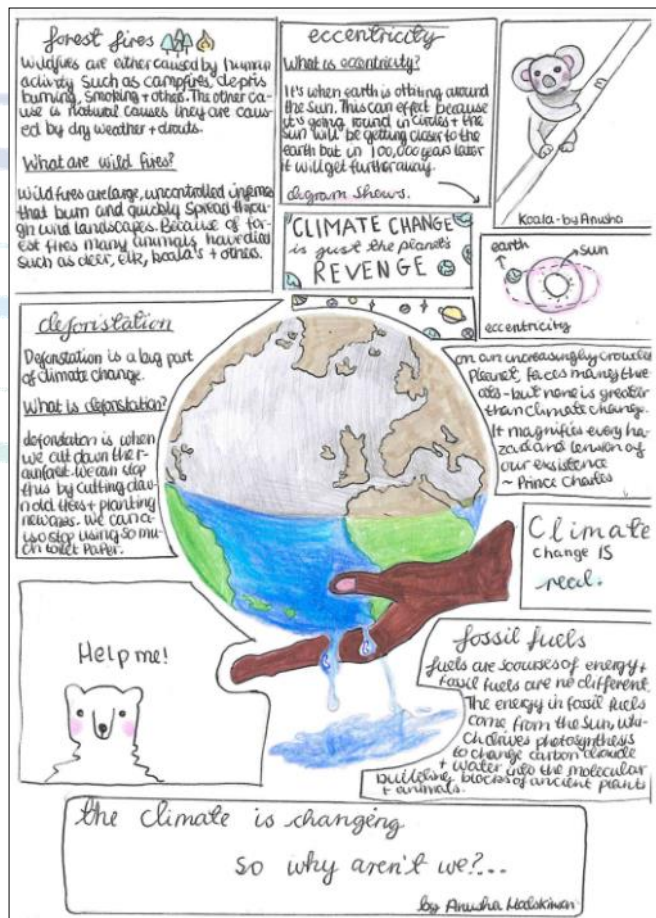 forest fires
Wildfires are either caused by human
activity such as campfires, depris
burning, smoking + others. The other ca-
use is natural causes they are caus-
ed by dry weather + drouts.
What are wild fires?
Wild fires are large, uncontrolled infernos
that burn and quickly spread throu-
gh wild landscapes. Because of for-
est fires many animals have died
such as deer, elk, koala's + others.
eccentricity
What is eccentricity?
It's when earth is orbiting around
the Sun. This can effect because
it's going round in circles + the
Sun will be getting closer to the
earth but in 100,000 years later
it will get further away.
digram shows.
Koala - by Anusha
CLIMATE CHANGE
is just the planet's
REVENGE
earth
sun
eccentricity
deforistation
Deforstation is a big part
of climate change.
What is deforstation?
deforstation is when
we cut down the r-
ainforest. we can stop
this by cutting dow-
n old trees + planting
new ones. We can a-
lso stop using so mu-
ch toilet paper.
on an increasingly crowded
Planet, faces many thre-
ats - but none is greater
than climate change.
It magnifies every ha-
zard and tension of
our existence
~ Prince Charles
Climate
change IS
real.
Help me!
fossil fuels
fuels are scourses of energy +
fossil fuels are no different.
The energy in fossil fuels
come from the sun, whi-
ch drives photosynthesis
to change carbon dioxide
+ water into the molecular
building blocks of ancient plants
+ animals.
the climate is changing
so why aren't we?...
by Anusha